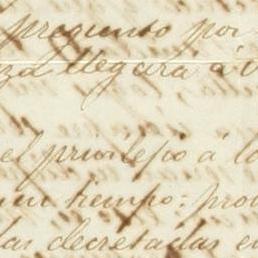 pregunto por
llegara á
el privilegio á la
un tiempo: pro
las decretadas en